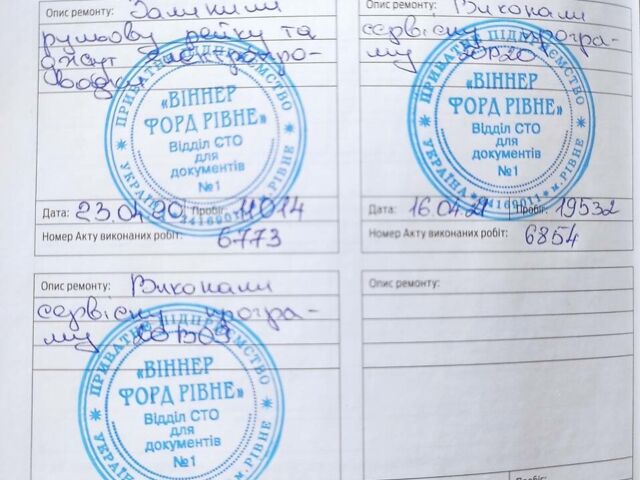 Опис ремонту: Замінили
рульову рейку та
джгут електропро-
водки
ПРИВАТНЕ ПІДПРИЄМСТВО
«ВІННЕР
ФОРД РІВНЕ»
Відділ СТО
для
документів
№1
УКРАЇНА * 24169011 * м. РІВНЕ
Дата: 23.04.20 Пробіг: 11014
Номер Акту виконаних робіт: 6773
Опис ремонту: Виконали
сервісну програ-
му 20П20
ПРИВАТНЕ ПІДПРИЄМСТВО
«ВІННЕР
ФОРД РІВНЕ»
Відділ СТО
для
документів
№1
УКРАЇНА * 24169011 * м. РІВНЕ
Дата: 16.04.21 Пробіг: 19532
Номер Акту виконаних робіт: 6854
Опис ремонту: Виконали
сервісну програ-
му
ПРИВАТНЕ ПІДПРИЄМСТВО
«ВІННЕР
ФОРД РІВНЕ»
Відділ СТО
для
документів
№1
УКРАЇНА м. РІВНЕ
Опис ремонту: